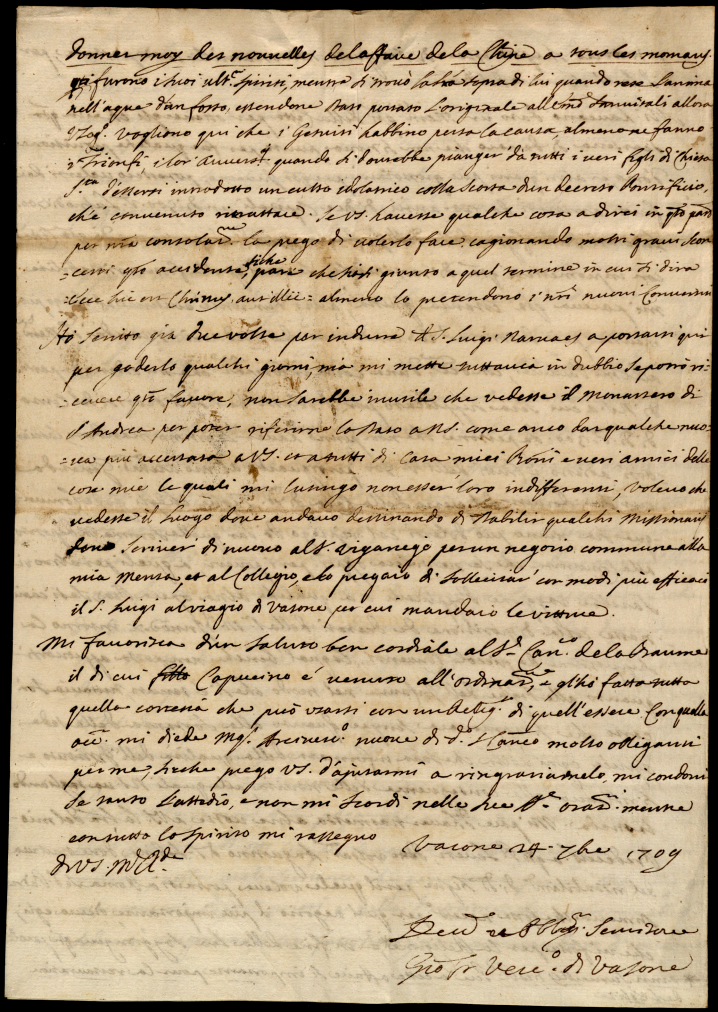 donner moy des nouvelles de laffaire de la Chine a tous les momans
furono i suoi ult.i spiriti, mentre si trovò sopra di lui quando rese l'anima
nell'aque d'un fosso, essendone stato portato l'originale all' allora
vogliono qui che i Gesuiti habbino persa la causa, almeno ne fanno
Trionfi, i lor Avvers.i quando si dovrebbe pianger da tutti i veri figli di Chiesa
S.ta d'essersi introdotto un culto idolatrico colla scorta d'un decreto Pontificio,
ch'è convenuto ritrattare. Se VS. havesse qualche cosa a dirci in q.to part.
per mia consolat.ne la prego di volerlo fare cagionando molti gravi scon-
-certi q.to accidente, siche pare che siasi giunto a quel termine in cui si dira
Ecce hic est Christus, aut illic = almeno lo pretendono i n.ri nuovi Convertiti
Hò scritto già due volte per indurre il S. Luigi a portarsi qui
per goderlo qualchi giorni, mà mi mette tuttavia in dubbio se potrò ri-
-cevere q.to favore, non sarebbe inutile che vedesse il Monastero di
S. Andrea per poter riferirne lo stato a NS. come anco dar qualche nuo-
-va più accertata a VS. et a tutti di Casa miei Proni e veri amici delle
cose mie le quali mi lusingo non esser loro indifferenti, volevo che
vedesse il luogo dove andavo destinando di stabilir qualchi Missionari
dove scriver di nuovo al S. Viganego per un negotio commune alla
mia Mensa, et al Collegio, e lo pregarò di sollecitar con modi più efficaci
il S. Luigi al viagio di Vasone per cui mandarò le vitture.
Mi favorisca d'un saluto ben cordiale al S.r Can.co de la Baume
il di cui fratello Capucino é venuto all'ordinat.ne, e gl'hò fatta tutta
quella cortesia che può usarsi con un Relig.o di quell'essere Con quella
occ.e mi diede Mg.r Arcivesc.o nuove di d.o S. Can.co molto obliganti
per me, siche prego VS. d'ajutarmi a ringratiarnelo, mi condoni
se tanto l'attedio, e non mi scordi nelle sue S.te orat.i mentre
con tutto lo spirito mi rassegno
di VS. M.to R.da
Vasone 24. 7bre 1709
Dev.mo et Obblig.mo Servitore
Gio: Fr. Vesc.o di Vasone